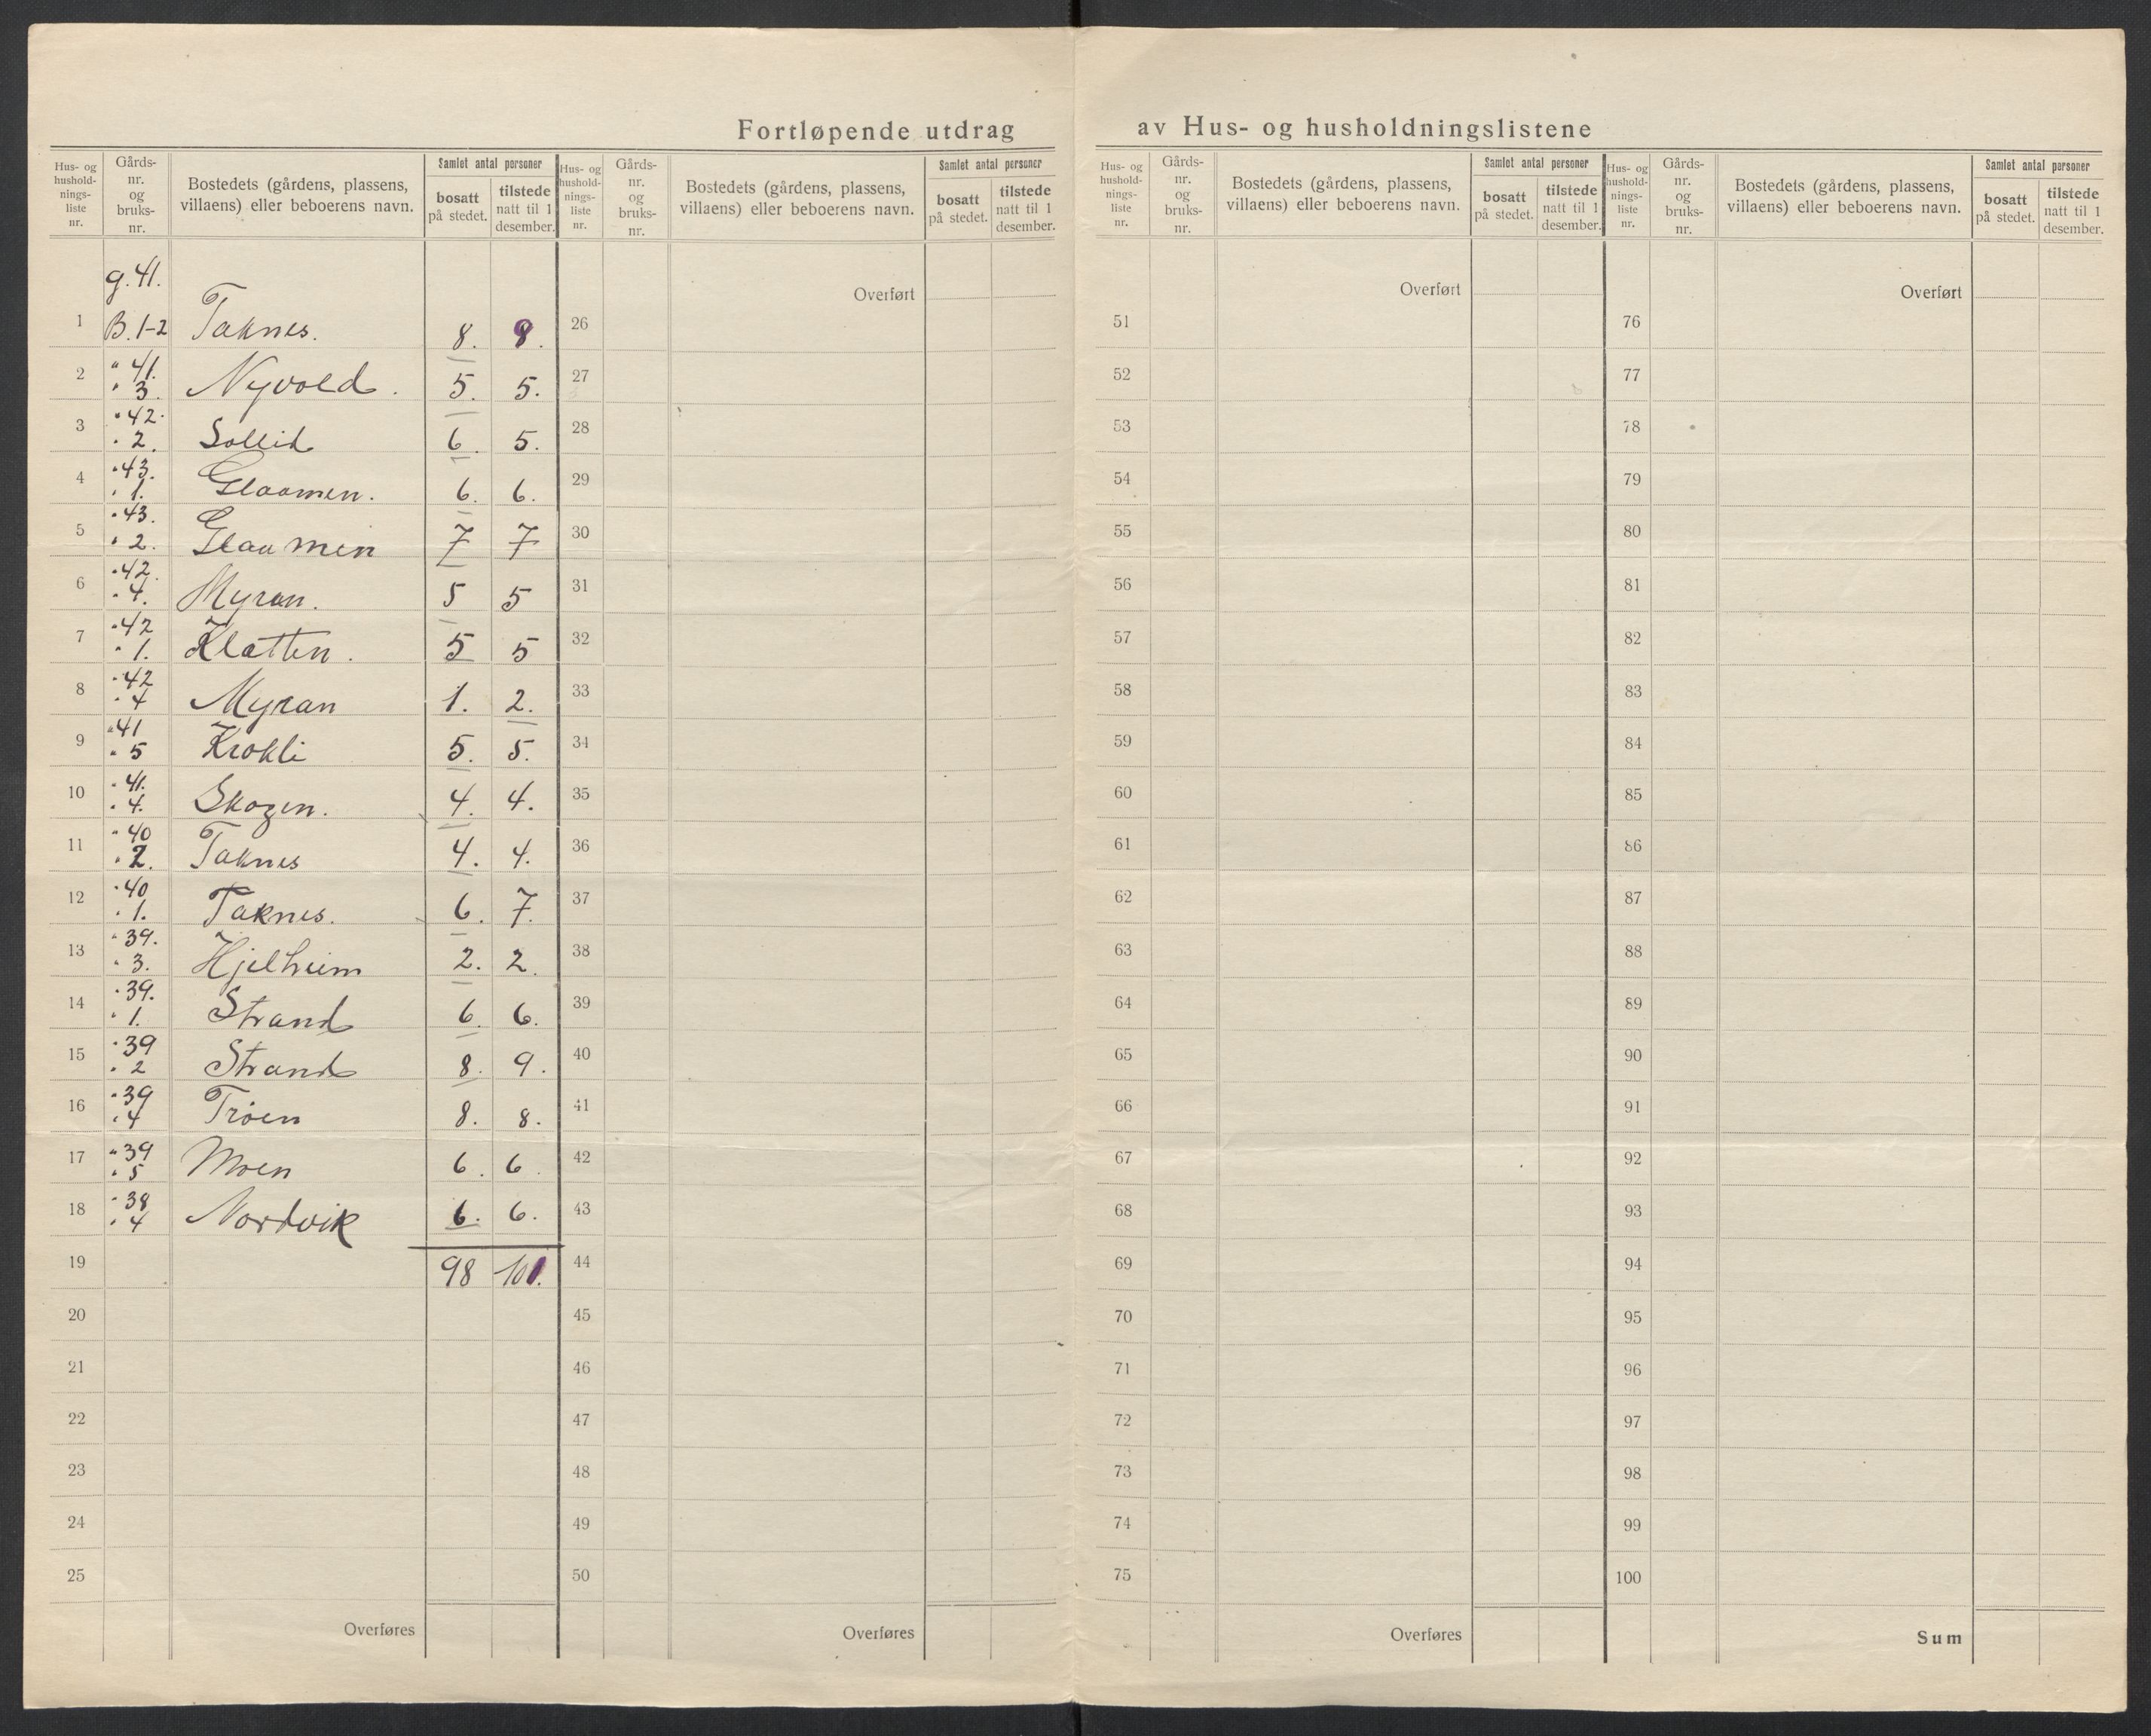 Fortløpende utdrag av Hus- og husholdningslistene
Hus- og hushold-nings-liste nr. | Gårds-nr. og bruks-nr. | Bostedets (gårdens, plassens, villaens) eller beboerens navn. | Samlet antal personer | bosatt på stedet. | tilstede natt til 1 desember.
Hus- og hushold-nings-liste nr. | Gårds-nr. og bruks-nr. | Bostedets (gårdens, plassens, villaens) eller beboerens navn. | Samlet antal personer | bosatt på stedet. | tilstede natt til 1 desember.
Hus- og hushold-nings-liste nr. | Gårds-nr. og bruks-nr. | Bostedets (gårdens, plassens, villaens) eller beboerens navn. | Samlet antal personer | bosatt på stedet. | tilstede natt til 1 desember.
Hus- og hushold-nings-liste nr. | Gårds-nr. og bruks-nr. | Bostedets (gårdens, plassens, villaens) eller beboerens navn. | Samlet antal personer | bosatt på stedet. | tilstede natt til 1 desember.
g. 41.
1 B. 1-2 Taknes. 8. 8.
2 " 41. " 3. Nyvold. 5. 5.
3 " 42. " 2. Sollid 6. 5.
4 " 43. " 1. Glaamen. 6. 6.
5 " 43. " 2. Glaamen 7 7
6 " 42. " 4. Myran. 5 5
7 " 42 " 1. Kletten. 5 5
8 " 42 " 4 Myran 1. 2.
9 " 41 " 5 Krokli 5. 5.
10 " 41. " 4. Skogen. 4. 4.
11 " 40 " 2. Taknes 4. 4.
12 " 40 " 1. Taknes. 6. 7.
13 " 39. " 3. Hjelheim 2. 2.
14 " 39. " 1. Strand 6. 6.
15 " 39 " 2 Strand 8. 9.
16 " 39 " 4 Trøen 8. 8.
17 " 39 " 5 Moen 6. 6.
18 " 38 " 4 Nordvik 6. 6.
19 98 101.
20
21
22
23
24
25
Overføres
Overført
26
27
28
29
30
31
32
33
34
35
36
37
38
39
40
41
42
43
44
45
46
47
48
49
50
Overføres
Overført
51
52
53
54
55
56
57
58
59
60
61
62
63
64
65
66
67
68
69
70
71
72
73
74
75
Overføres
Overført
76
77
78
79
80
81
82
83
84
85
86
87
88
89
90
91
92
93
94
95
96
97
98
99
100
Sum